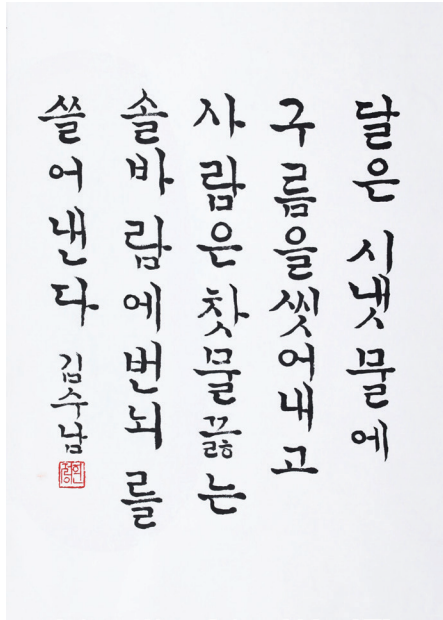 달은 시냇물에
구름을씻어내고
사람은찻물끓는
솔바람에번뇌를
쓸어낸다
김수남